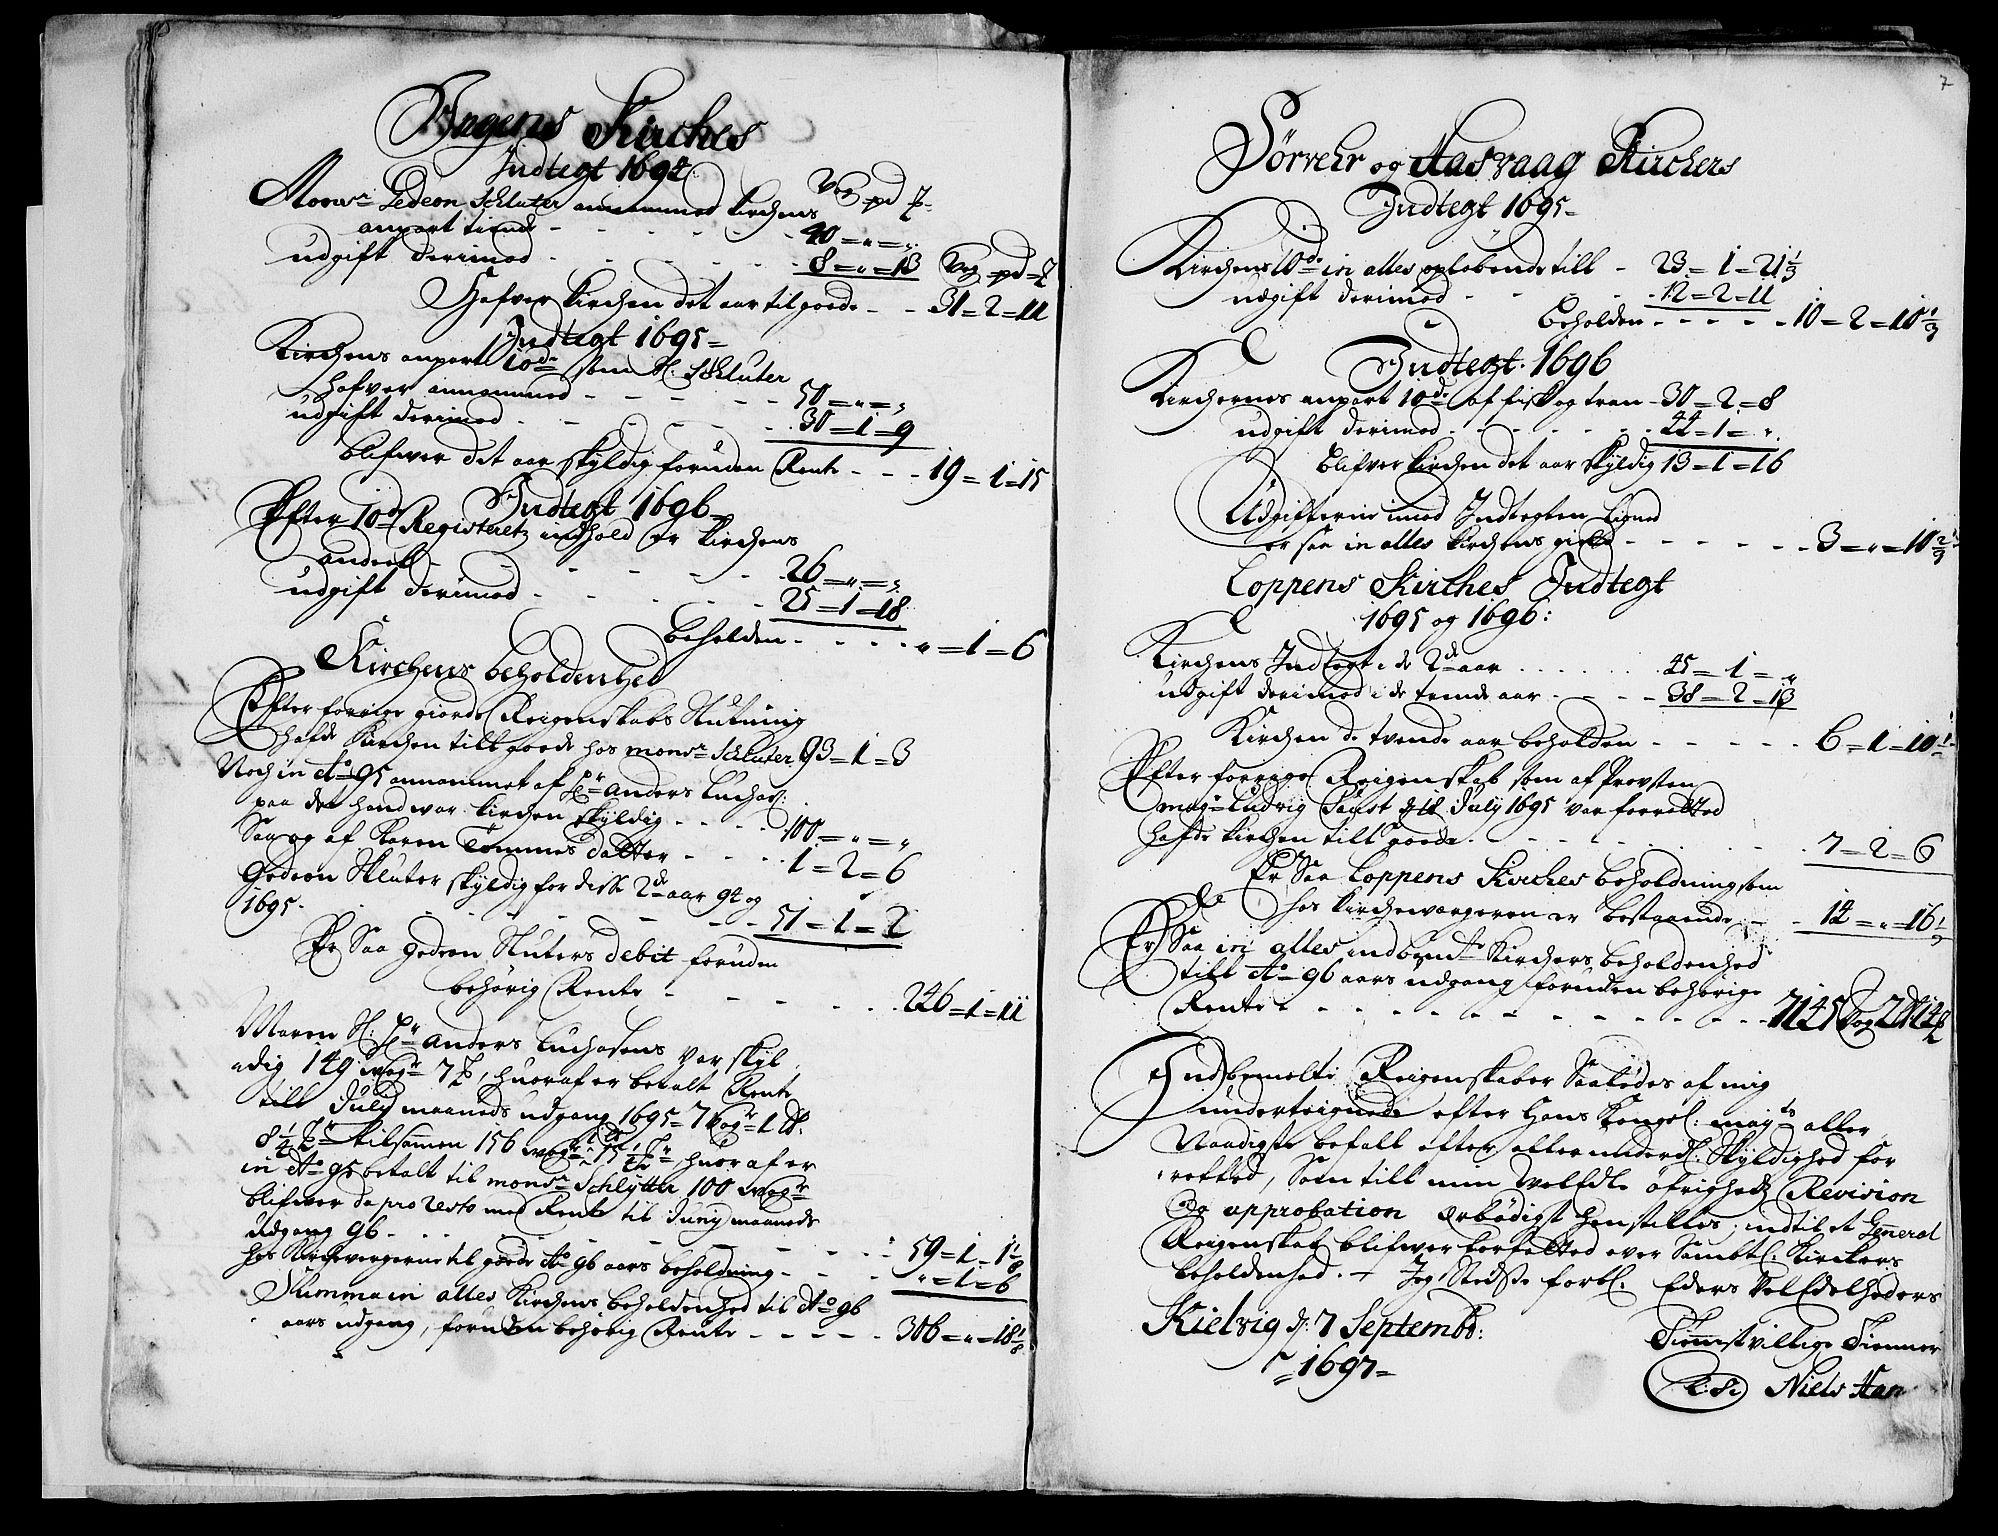 Ingens Kirches
Indtegt 1694
Monsr Gedeon Schluter annammed Kirchens Vog pd
anpart tiende - - - 40 = " = "
udgift derimod - - - 8 = " = 13 Vog pd
Hafver Kirchen det aar tilgode - - 31 = 2 = 11
Indtegt 1695
Kirchens anpart 10de som H: Schluter
hafver annammed - - - 50 = " = "
udgift derimod - - - 30 = 1 = 9
blifwer det aar skyldig foruden Rente - - - 19 = 1 = 15
Indtegt 1696
Efter 10de Registeretz indhold er Kirchens
andeel - - - 26 = " = "
udgift derimod - - - 25 = 1 = 18
beholden - - - " = 1 = 6
Kirchens beholdenhed
Efter forrige giorde Reigenskabs Slutning
hafde Kirchen till goede hos monsr Schluter 93 = 1 = 3
Noch in Ao 95 annammet af Hr Anders Luchas:
paa det hand war Kirchen skyldig - - - 100 = " = "
Saa og af Karen Tommes datter - - - 1 = 2 = 6
Gedeon Sluter skyldig for disse 2de aar 94 og
1695 - - - 51 = 1 = 2
Er Saa Gedeon Sluters debit foruden
behörig Rente - - - 246 = 1 = 11
Maren Sl: Hr Anders Luchasens var skyl
dig 149 wogr 7 , huoraf er betalt Rente
till July maaneds udgang 1695 = 7 wogr 1 pd:
8 1/4 tilsammen 156 wogr 15 1/4 huoraf er
in Ao 95 betalt til monsr Schlytter 100 wogr
blifwer da pro resto med Rente til Junij maaneds
udgang 96 - - - 59 = 1 = 1 1/8
hos Kirchevergerne til goede Ao 96 aars beholdning - - - " = 1 = 6
Summa in alles Kirchens beholdenhed til Ao 96
aars udgang, foruden behörig Rente - - - 306 = " = 18 1/8
7
Sörvehr og Hasvaag Kirchers
Indtegt 1695
Kirchens 10de in alles oplöbende till - 23 = 1 = 21 1/3
udgift derimod - - - 12 = 2 = 11
beholden - - - 10 = 2 = 10 1/3
Indtegt 1696
Kirchernes anpart 10de af fisk og tran - 30 = 2 = 8
udgift derimod - - - 44 = 1 = "
blifver Kirchen det aar skyldig 13 = 1 = 16
Udgifterne imod Indtegten Ligned
er saa in alles Kirchens gield - - - 3 = " = 10 2/9
Loppens Kirches Indtegt
1695 og 1696:
Kirchens Indtegt i de 2de aar - - - 45 = 1 = "
udgift derimod i de tvende aar - - - 38 = 2 = 13
Kirchen de tvende aar beholden - - - 6 = 1 = 10
Efter forrige Reigenskab som af Provsten
magr Ludvig Paust d 18 July 1695 var forretted
hafde Kirchen till goede - - - 7 = 2 = 6
Er Saa Loppens Kirches beholdning som
hos Kirchewergeren er bestaaende - - 14 = " = 16
Er Saa in alles indbemte Kirchers beholdenhed
till Ao 96 aars udgang foruden behörige
Rente - - - 7145 Vog 2
Indbemelte Reigenskaber Saaledes af mig
undertegnede efter Hans Kongel: mayts aller
Naadigste befalt efter allerunderd: Skyldighed for
retted, Som till min Velædle öfrigheds Revision
Og approbation ærbödigst henstilles, indtil et General
Reigenskab blifwer forfatted over Sambtl: Kirckers
beholdenhed. - Jeg Stedse forbl: Eders VelEdelheders
Kielwig d: 7 Septembr: Tienistvillige Tienner
1697 L:S: Niels Han